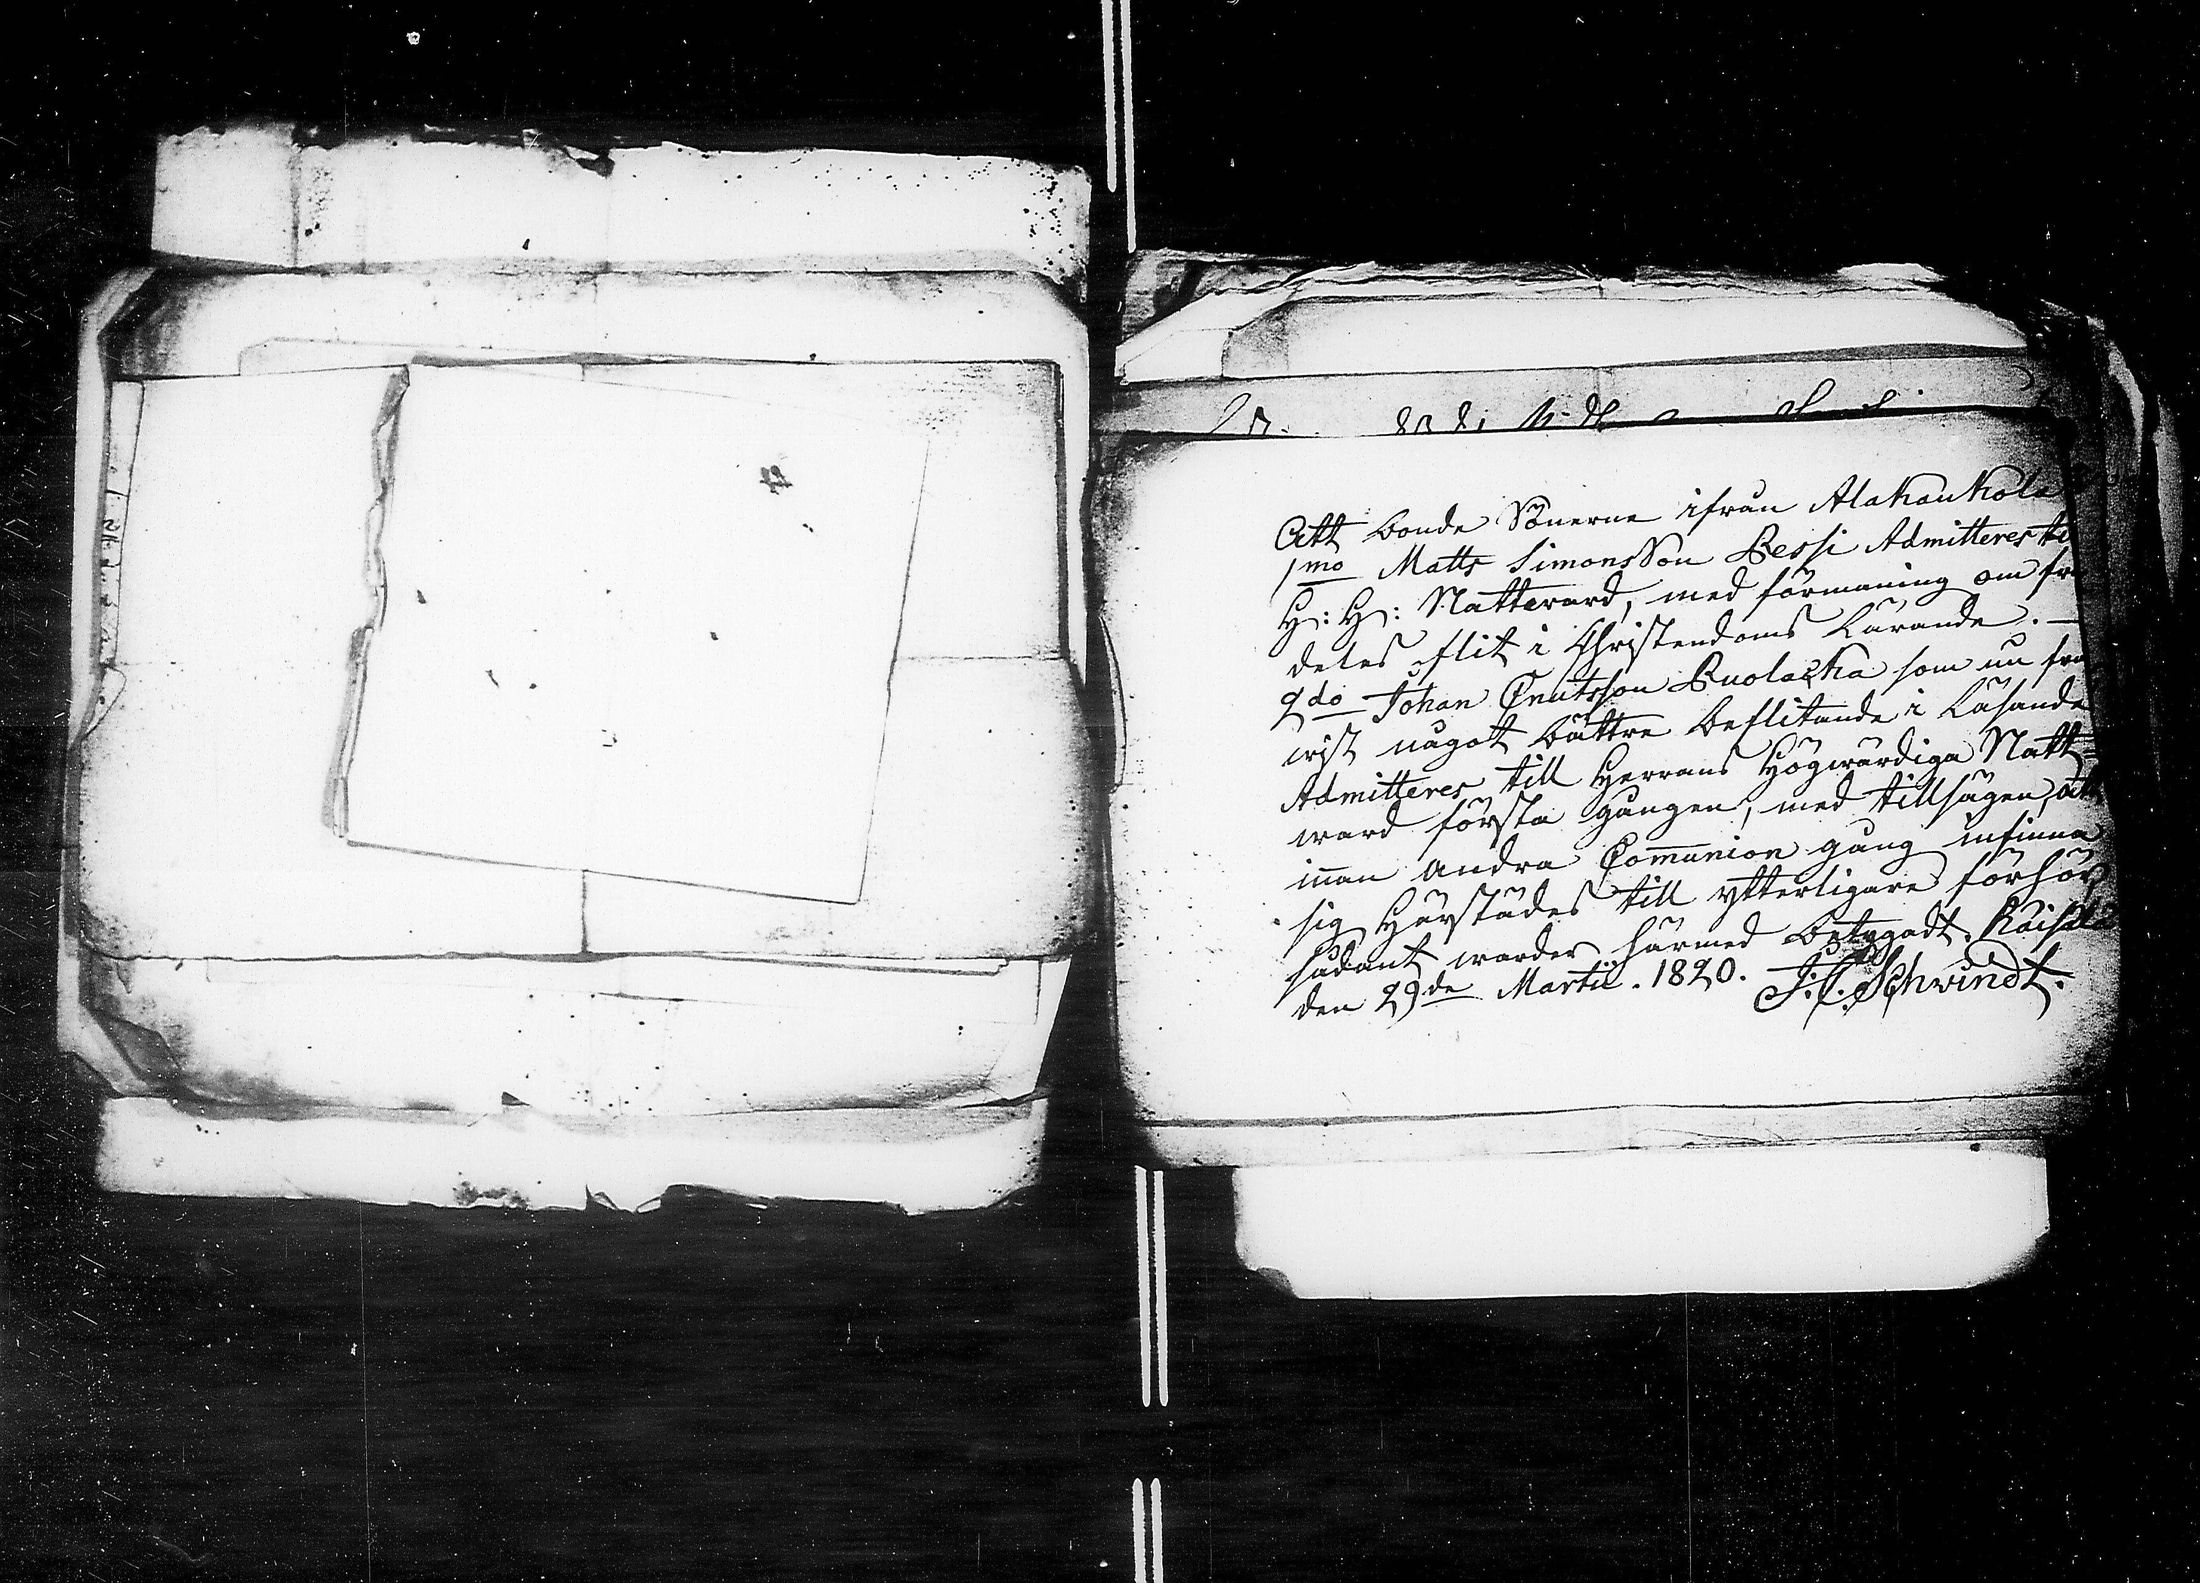 Att bonde Sönerne ifrån Alakankola
1mo Matts Simonsson Bessi Admitteres
H: H: Nattward, med förmaning om
deles flit i Christendoms Lärande. —
2do Johan Cnutsson Puolacka som nu
wist något bättre beflitande i Läsande
Admitteres till Herrans Högwärdiga Natt=
ward första gången, med tillsägen, att
innan andra Com̄union gång infinna
sig Härstädes till ytterligare förhör,
sådant warder härmed betygadt.
den 29de Martii. 1820. J. C. Schwindt.